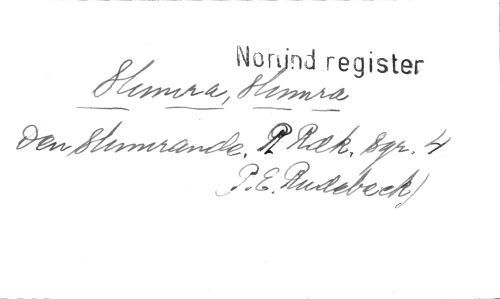 Norlind register
Skumra, Skumra
Den Skumrande. R Ræk. Sgr. 4
(P.E. Rudebeck)